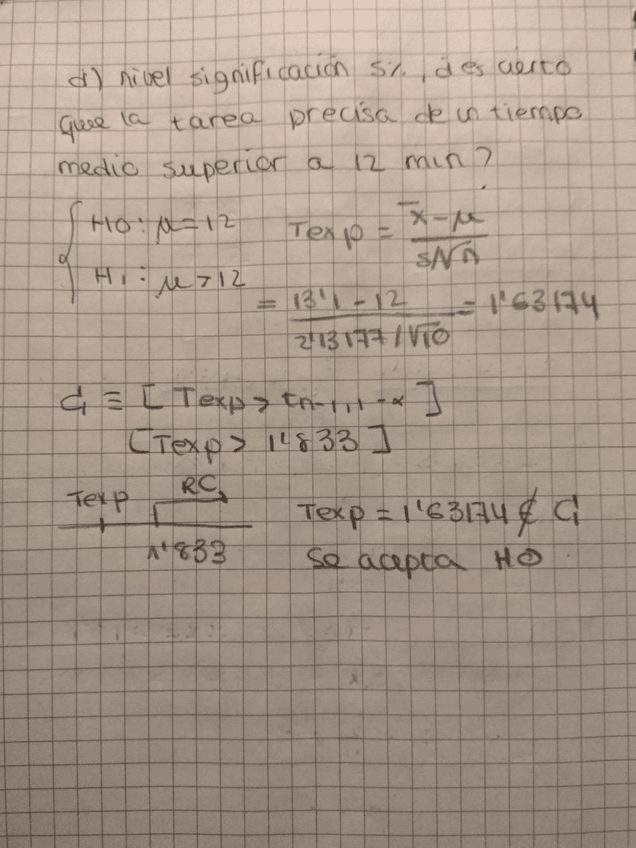 d) nivel significación 5%, ¿es cierto
que la tarea precisa de un tiempo
medio superior a 12 min?
H0: μ=12 Texp = x̄-μ / s/√n
H1: μ>12
= 13'1 - 12 / 2'13177/√10 = 1'63174
C1 ≡ [Texp > tn-1,1-α]
[Texp > 1'833]
Texp RC
1'833
Texp = 1'63174 ∉ C1
Se acepta H0